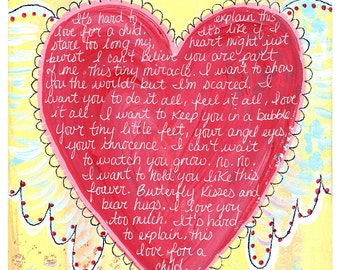 It's hard to explain this
love for a child. It's like if I
stare too long my heart might just
burst. I can't believe you are part
of me. This tiny miracle. I want to show
you the world, but I'm scared. I
want you to do it all, feel it all, love
it all. I want to keep you in a bubble.
Your tiny little feet, your angel eyes,
your innocence. I can't wait
to watch you grow. no. no.
I want to hold you like this
forever. Butterfly kisses and
bear hugs. I love you
too much. It's hard
to explain, this
love for a
child.